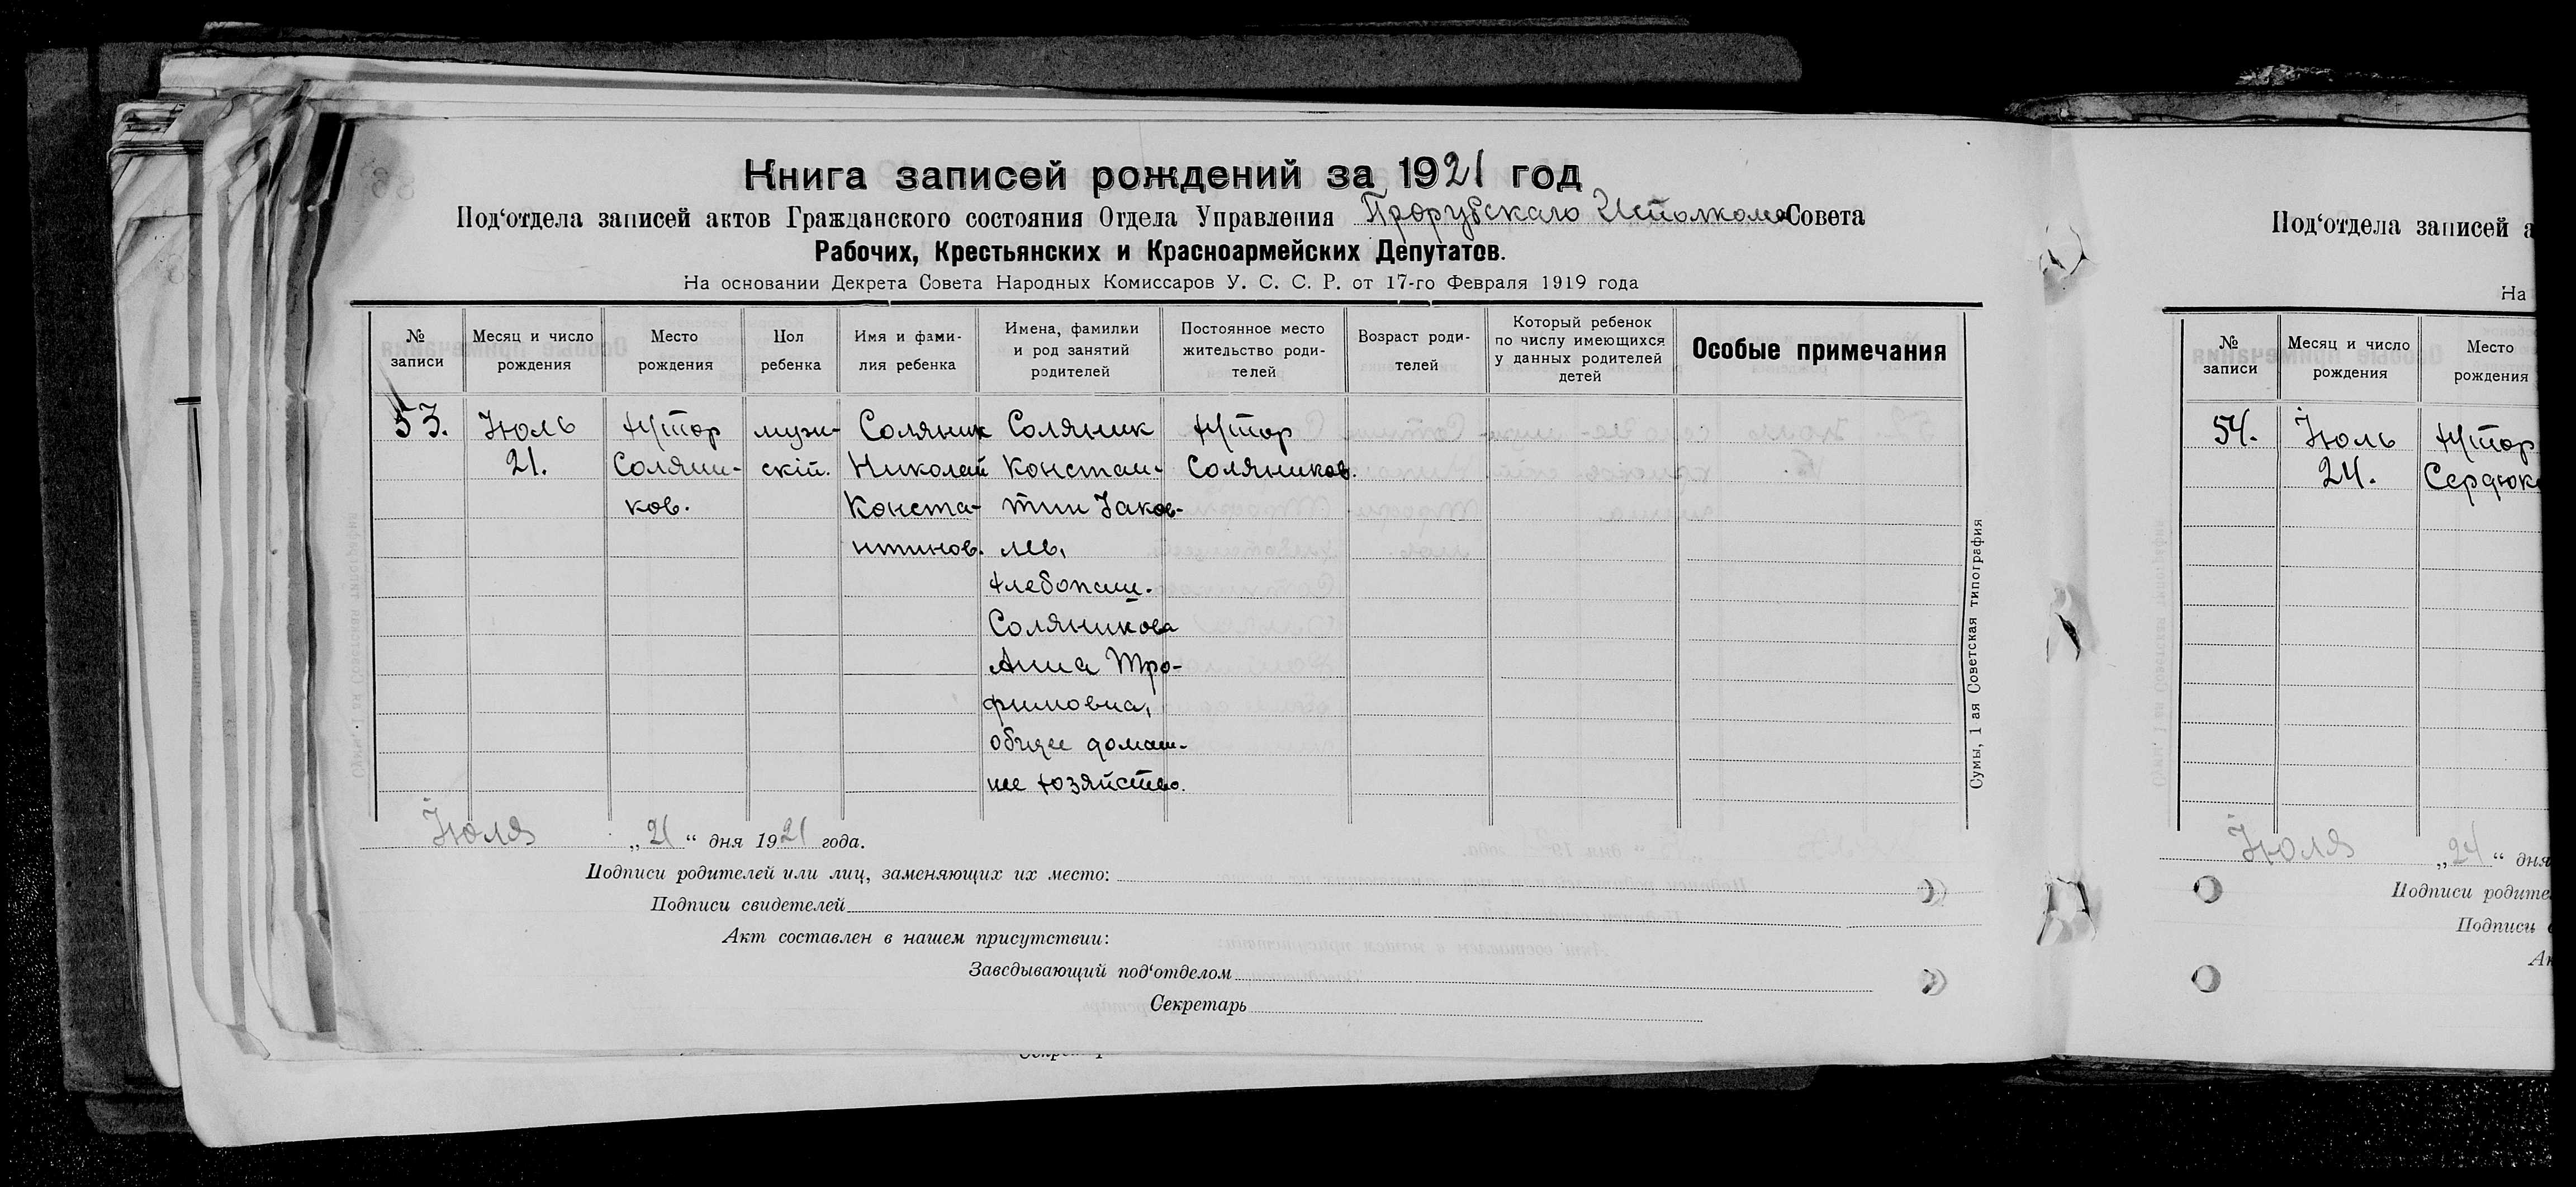 Книга записей рождений за 1921 год
Под‘отдела записей актов Гражданского состояния Отдела Управления Прорубскаго Исполкома Совета
Рабочих, Крестьянских и Красноармейских Депутатов.
На основании Декрета Совета Народных Комиссаров У. С. С. Р. от 17-го Февраля 1919 года
№
записи
Месяц и число
рождения
Место
рождения
Пол
ребенка
Имя и фами-
лия ребенка
Имена, фамилии
и род занятий
родителей
Постоянное место
жительство роди-
телей
Возраст роди-
телей
Который ребенок
по числу имеющихся
у данных родителей
детей
Особые примечания
53.
Июль
21.
Хутор
Соляни-
ков.
муж-
скiй.
Соляник
Николай
Конста-
нтинов.
Соляник
Констан-
тин Iаков-
лев,
хлебопаш.
Соляникова
Анна Тро-
фимовна,
общее домаш-
нее хозяйство.
Хутор
Соляников.
Июля „21“ дня 1921 года.
Подписи родителей или лиц, заменяющих их место:
Подписи свидетелей
Акт составлен в нашем присутствии:
Заведывающий под‘отделом
Секретарь
Сумы, 1 ая Советская типография
Под‘отдела записей а
На
№
записи
Месяц и число
рождения
Место
рождения
54.
Июль
24.
Хутор
Сердюк
Июля „24“ дня
Подписи родите
Подписи
Ак